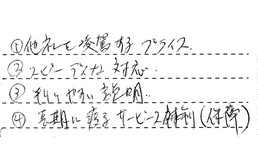 ①他社を凌駕するプライス
②スピーディな対応
③わかりやすい説明
④長期に亘るサービス体制(保障)